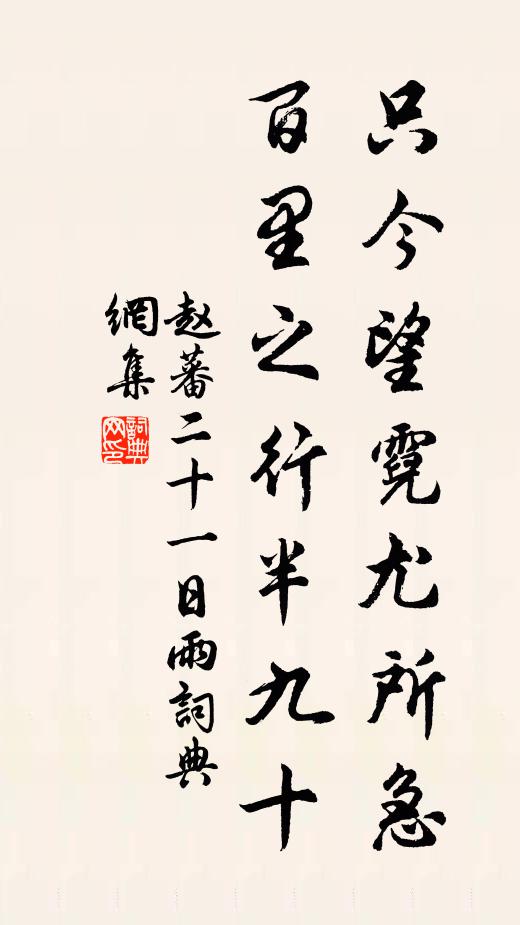 只今望霓尤所急
百里之行半九十
趙蕃二十一日雨詞典
網集
詞典
网印